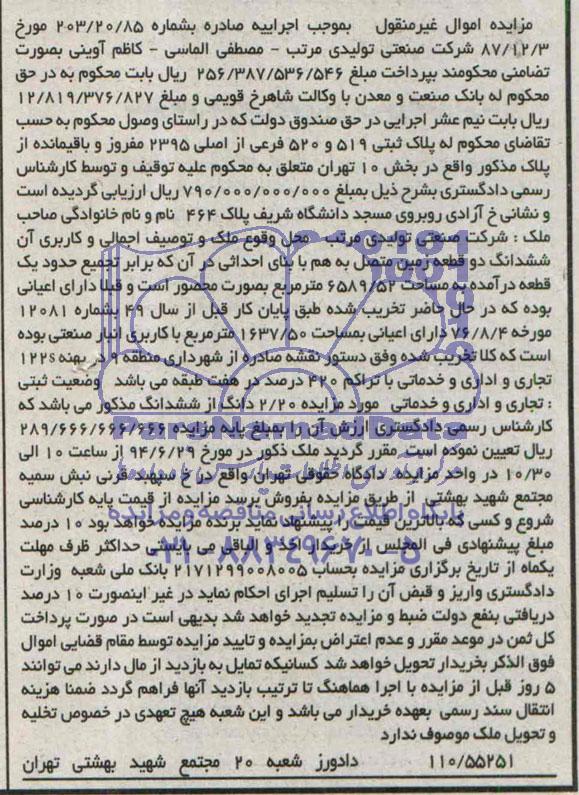 مزایده اموال غیرمنقول بموجب اجراییه صادره بشماره ۲۰۳/۲۰/۸۵ مورخ
۸۷/۱۲/۳ شرکت صنعتی تولیدی مرتب - مصطفی الماسی - کاظم آوینی بصورت
تضامنی محکومند بپرداخت مبلغ ۲۵۶/۳۸۷/۵۳۶/۵۴۶ ریال بابت محکوم به در حق
محکوم له بانک صنعت و معدن با وکالت شاهرخ قویمی و مبلغ ۱۲/۸۱۹/۳۷۶/۸۲۷
ریال بابت نیم عشر اجرایی در حق صندوق دولت که در راستای وصول محکوم به حسب
تقاضای محکوم له پلاک ثبتی ۵۱۹ و ۵۲۰ فرعی از اصلی ۲۳۹۵ مفروز و باقیمانده از
پلاک مذکور واقع در بخش ۱۰ تهران متعلق به محکوم علیه توقیف و توسط کارشناس
رسمی دادگستری بشرح ذیل بمبلغ ۷۹۰/۰۰۰/۰۰۰/۰۰۰ ریال ارزیابی گردیده است
و نشانی خ آزادی روبروی مسجد دانشگاه شریف پلاک ۴۶۴ نام و نام خانوادگی صاحب
ملک : شرکت صنعتی تولیدی مرتب محل وقوع ملک و توصیف اجمالی و کاربری آن
ششدانگ دو قطعه زمین متصل به هم با بنای احداثی در آن که برابر تجمیع حدود یک
قطعه درآمده به مساحت ۶۵۸۹/۵۲ مترمربع بصورت محصور است و قبلا دارای اعیانی
بوده که در حال حاضر تخریب شده طبق پایان کار قبل از سال ۴۹ بشماره ۱۲۰۸۱
مورخه ۷۶/۸/۴ دارای اعیانی بمساحت ۱۶۳۷/۵۰ مترمربع با کاربری انبار صنعتی بوده
است که کلا تخریب شده وفق دستور نقشه صادره از شهرداری منطقه ۹ در پهنه ۱۲۲s
تجاری و اداری و خدماتی با تراکم ۴۲۰ درصد در هفت طبقه می باشد وضعیت ثبتی
: تجاری و اداری و خدماتی مورد مزایده ۲/۲۰ دانگ از ششدانگ مذکور می باشد که
کارشناس رسمی دادگستری ارزش آن را بمبلغ پایه مزایده ۲۸۹/۶۶۶/۶۶۶/۶۶۶
ریال تعیین نموده است مقرر گردید ملک ذکور در مورخ ۹۴/۶/۲۹ از ساعت ۱۰ الی
۱۰/۳۰ در واحد مزایده دادگاه حقوقی تهران واقع در خ سپهبد قرنی نبش سمیه
مجتمع شهید بهشتی از طریق مزایده بفروش برسد مزایده از قیمت پایه کارشناسی
شروع و کسی که بالاترین قیمت را پیشنهاد نماید برنده مزایده خواهد بود ۱۰ درصد
مبلغ پیشنهادی فی المجلس از خریدار اخذ و الباقی می بایستی حداکثر ظرف مهلت
یکماه از تاریخ برگزاری مزایده بحساب ۲۱۷۱۲۹۹۰۰۸۰۰۵ بانک ملی شعبه وزارت
دادگستری واریز و قبض آن را تسلیم اجرای احکام نماید در غیر اینصورت ۱۰ درصد
دریافتی بنفع دولت ضبط و مزایده تجدید خواهد شد بدیهی است در صورت پرداخت
کل ثمن در موعد مقرر و عدم اعتراض بمزایده و تایید مزایده توسط مقام قضایی اموال
فوق الذکر بخریدار تحویل خواهد شد کسانیکه تمایل به بازدید از مال دارند می توانند
۵ روز قبل از مزایده با اجرا هماهنگ تا ترتیب بازدید آنها فراهم گردد ضمنا هزینه
انتقال سند رسمی بعهده خریدار می باشد و این شعبه هیچ تعهدی در خصوص تخلیه
و تحویل ملک موصوف ندارد
۱۱۰/۵۵۲۵۱ دادورز شعبه ۲۰ مجتمع شهید بهشتی تهران
ParsNamadData
پایگاه اطلاع رسانی مناقصه و مزایده
۰۲۱-۸۸۳۴۹۶۷۰-۵